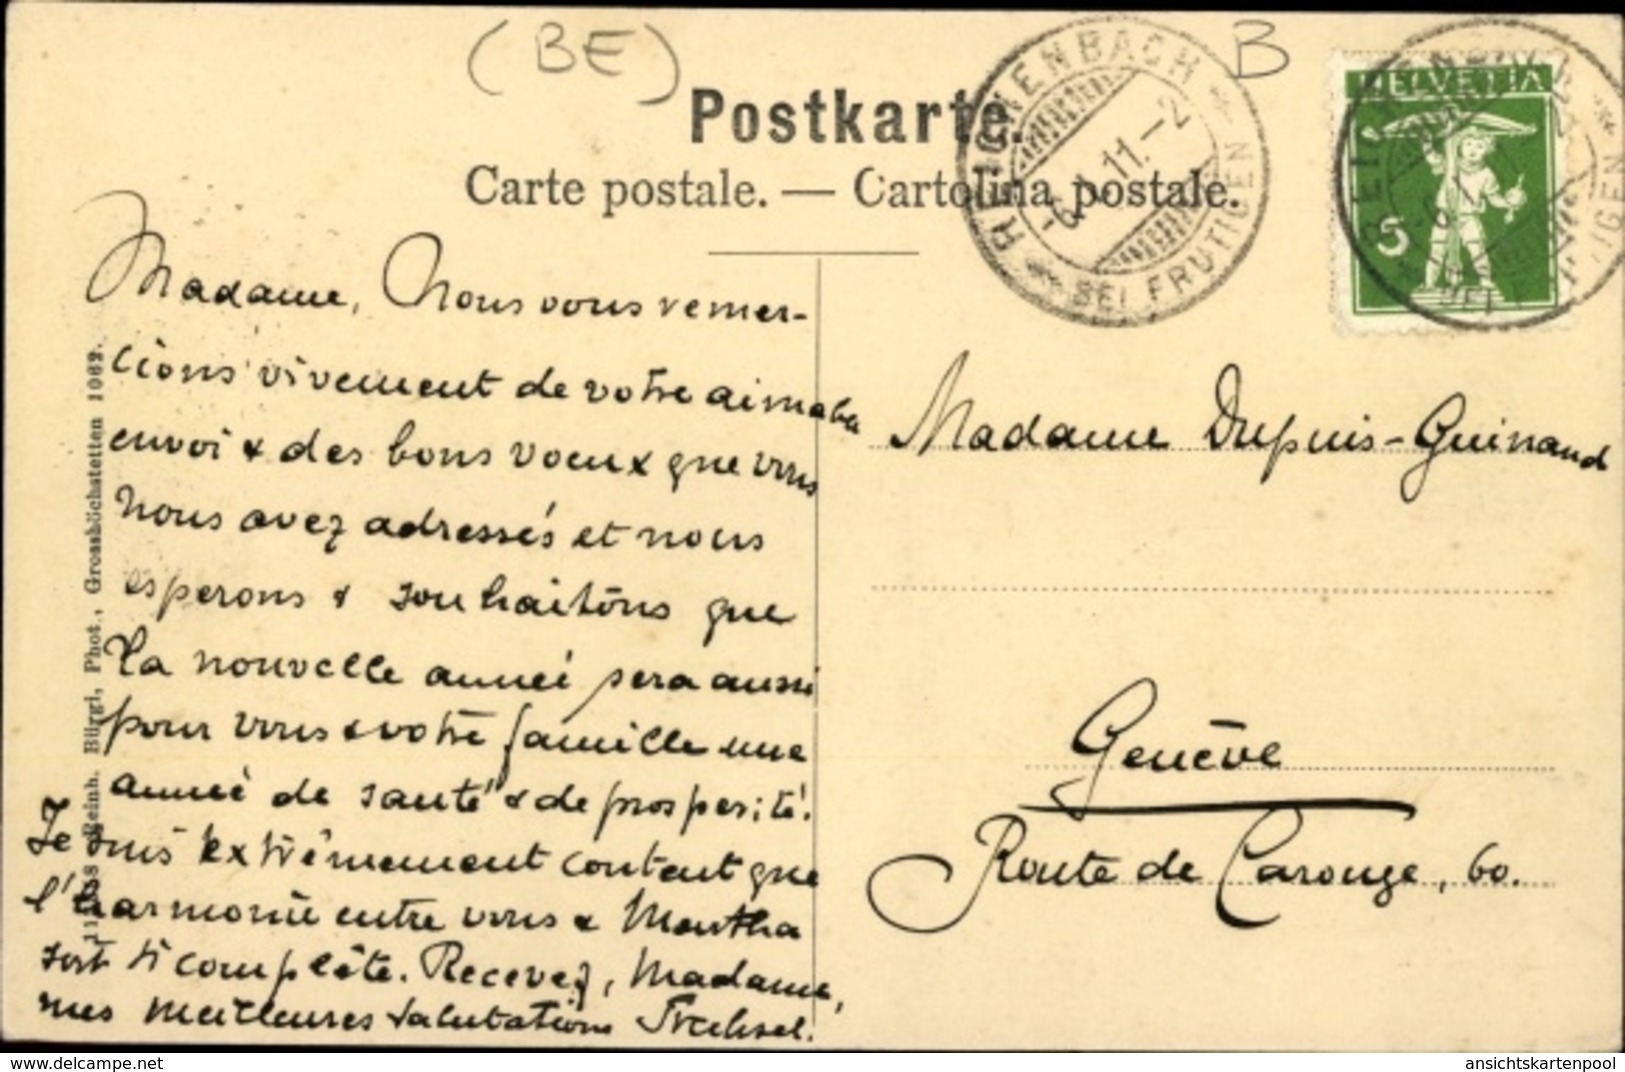 (BE)
B
Postkarte.
Carte postale. — Cartolina postale.
REICHENBACH
BEI FRUTIGEN
HELVETIA
5
Madame, Nous vous remer-
cions vivement de votre aimable
envoi & des bons voeux que vous
nous avez adressés et nous
esperons & souhaitons que
la nouvelle année sera aussi
pour vous & votre famille une
année de santé & de prosperité.
Je suis extrêmement content que
l'harmonie entre vous & Martha
soit si complète. Recevez, Madame,
mes meilleures salutations
Madame Dupuis-Guinand
Genève
Route de Carouge, 60.
Reinh. Bürgi, Phot., Grosshöchstetten 1062.
www.delcampe.net
ansichtskartenpool